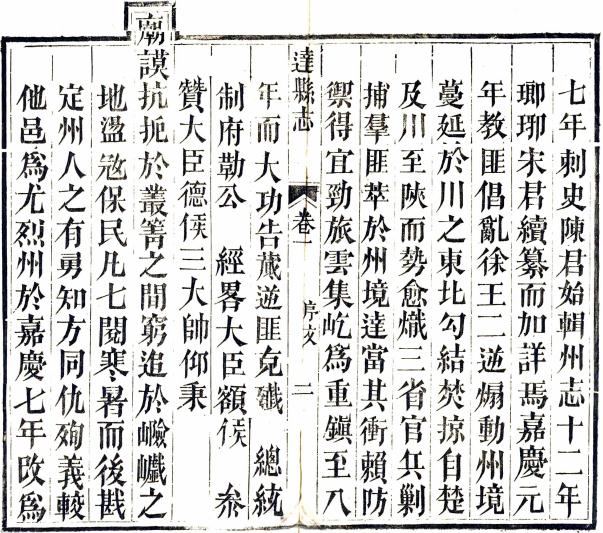 七年刺史陳君始輯州志十二年
瑯琊宋君續纂而加詳焉嘉慶元
年教匪倡亂徐王二逆煽動州境
蔓延於川之東北勾結焚掠自楚
及川至陝而勢愈熾三省官兵剿
捕羣匪萃於州境達當其衝賴防
禦得宜勁旅雲集屹爲重鎭至八
達縣志 卷一 序文 二
年而大功告蕆逆匪克殲 總統
制府勒公 經畧大臣額侯 叅
贊大臣德侯三大帥仰秉
廟謨抗扼於叢箐之間窮追於巇之
地盪寇保民凡七閱寒暑而後戡
定州人之有勇知方同仇殉義較
他邑爲尤烈州於嘉慶七年改爲